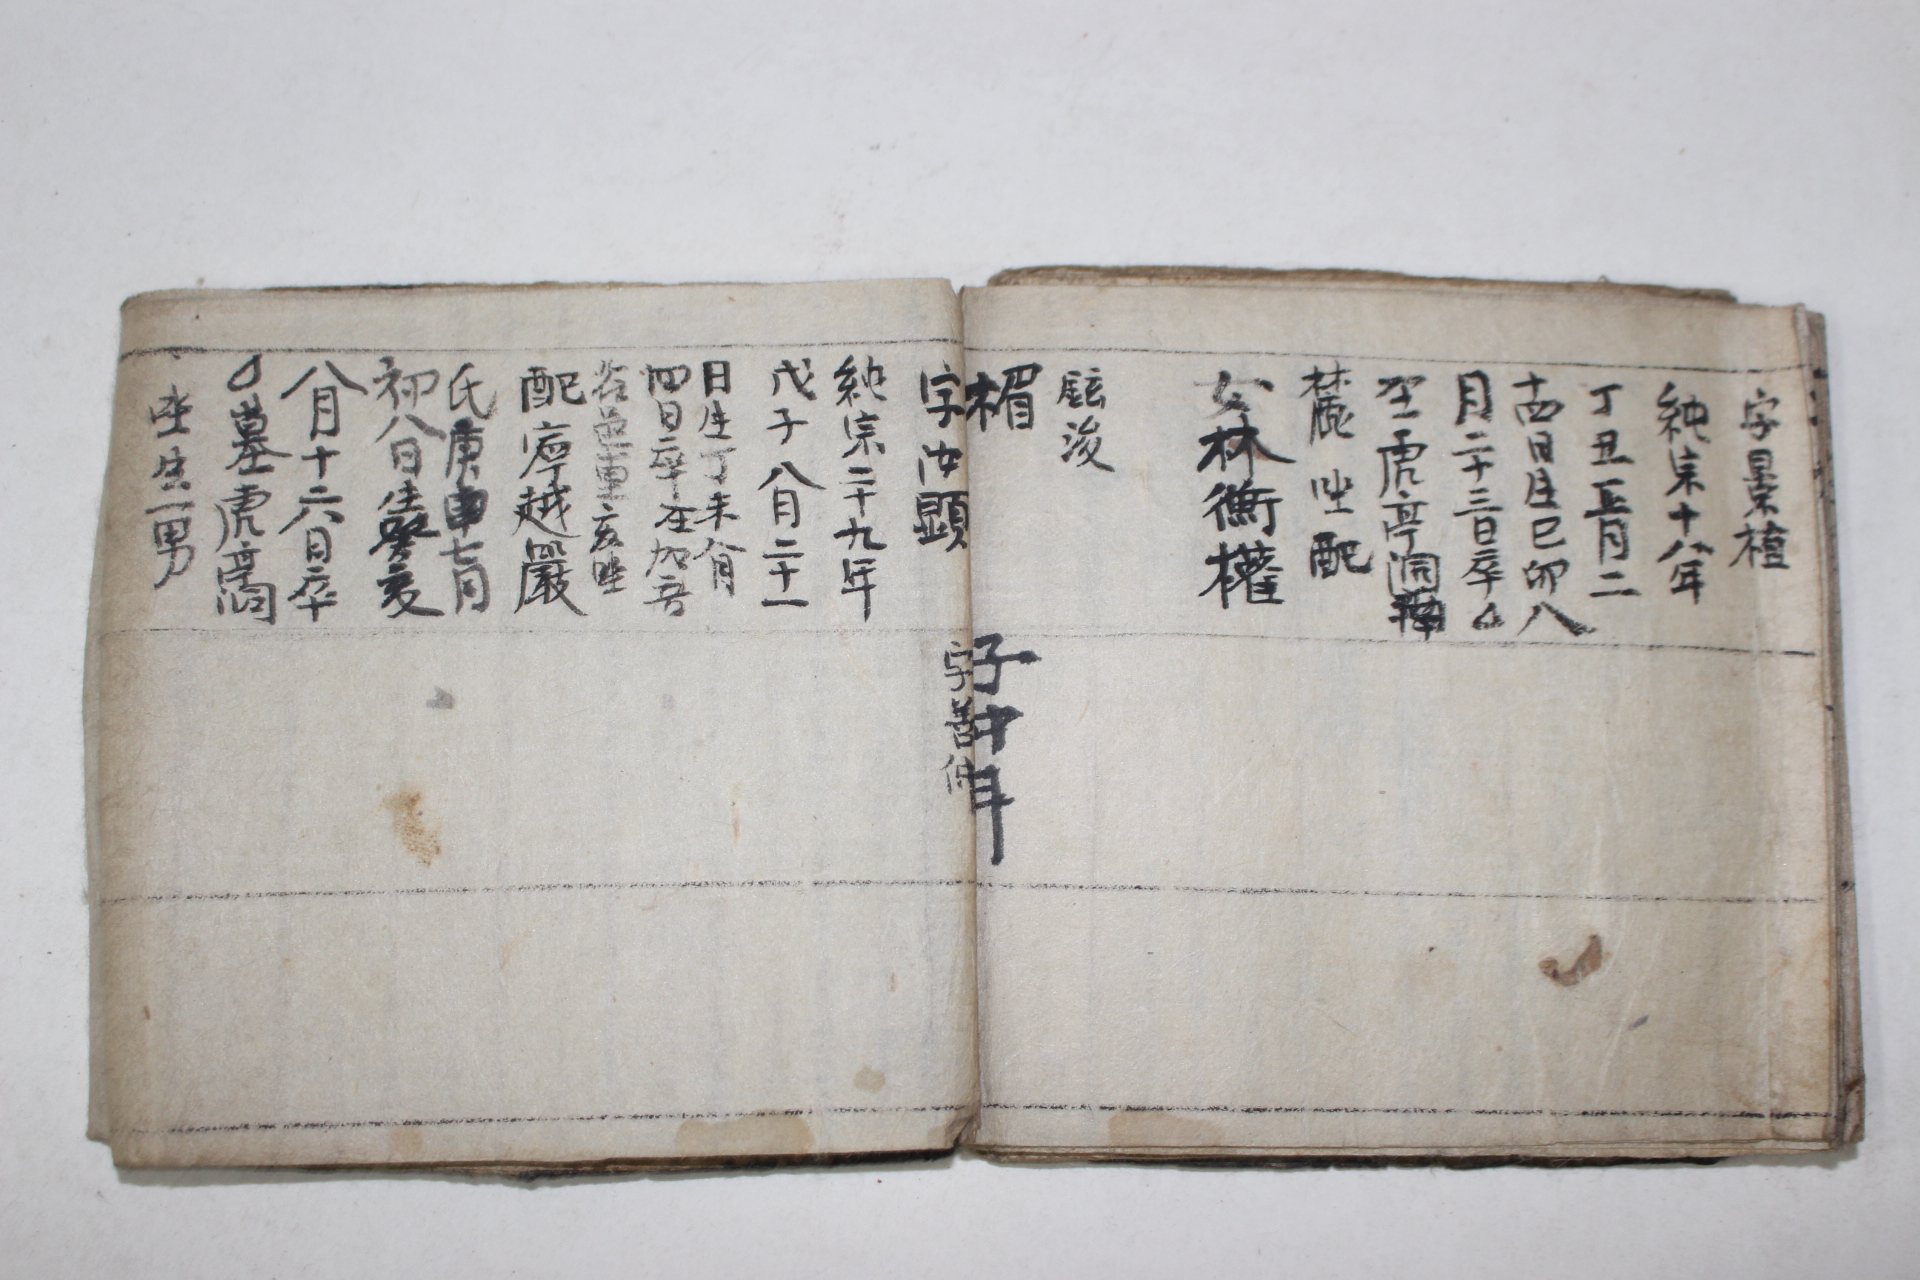 字景檀
純宗十八年
丁丑正月二
十四日生己卯八
月二十三日卒
坐虎亭洞
麓 坐配
女林衡權
鉉浚
楣
字汝顯
純宗二十九年
戊子八月二十一
日生丁未
四日卒
亥坐
配寧越嚴
氏庚申七月
初八日生
八月十六日卒
墓虎亭洞
坐生二男
子
字善仲